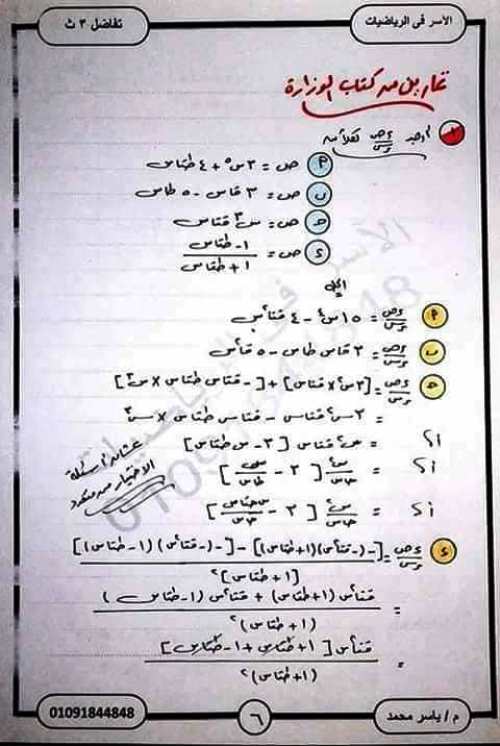 الأسر فى الرياضيات
تفاضل ٣ ث
تمارين من كتاب الوزارة
١ أوجد ءص/ءس لكلاً من
P ص = ٣س٥ + ٤ طتاس
ب ص = ٣ قاس - ٥ طاس
حـ ص = س٣ قتاس
ء ص = ١ - طتاس / ١ + طتاس
الحل
P ءص/ءس = ١٥س٤ - ٤ قتا٢س
ب ءص/ءس = ٣ قاس طاس - ٥ قا٢س
حـ ءص/ءس = [٣س٢ × قتاس] + [- قتاس طتاس × س٣]
= ٣س٢ قتاس - قتاس طتاس × س٣
أ؟ = س٢ قتاس [٣ - س طتاس]
أ؟ = س٢/حاس [٣ - س/طاس]
أ؟ = س٢/حاس [٣ - س حتاس/حاس]
عشان أسئلة
الاختيار من متعدد
ء ءص/ءس = [(- قتا٢س)(١ + طتاس)] - [(- قتا٢س)(١ - طتاس)] / [١ + طتاس]٢
= قتا٢س (١ + طتاس) + قتا٢س (١ - طتاس) / (١ + طتاس)٢
= قتا٢س [١ + طتاس + ١ - طتاس] / (١ + طتاس)٢
م / ياسر محمد
٦
01091844848